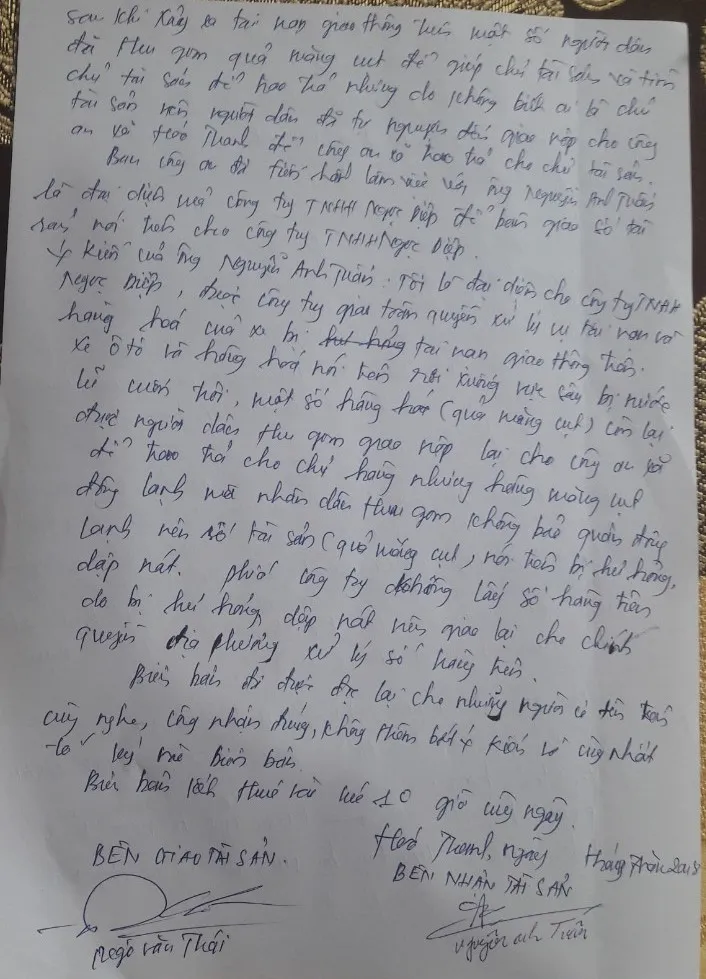 sau khi xảy ra tai nạn giao thông trên một số người dân
đã thu gom quả măng cụt để giúp chủ tài sản và tìm
chủ tài sản để trao trả nhưng do không biết ai là chủ
tài sản nên người dân đã tự nguyện đến giao nộp cho công
an xã Hoà Thanh để công an xã trao trả cho chủ tài sản.
Ban công an đã tiến hành làm việc với ông Nguyễn Anh Tuấn
là đại diện của công ty TNHH Ngọc Diệp để bàn giao số tài
sản nói trên cho công ty TNHH Ngọc Diệp.
Ý kiến của ông Nguyễn Anh Tuấn: Tôi là đại diện cho công ty TNHH
Ngọc Diệp, được công ty giao toàn quyền xử lý vụ tai nạn và
hàng hoá của xe bị hư hỏng tai nạn giao thông trên.
Xe ô tô và hàng hoá nói trên rơi xuống vực sâu bị nước
lũ cuốn trôi, một số hàng hoá (quả măng cụt) còn lại
được người dân thu gom giao nộp lại cho công an xã
để trao trả cho chủ hàng nhưng hàng măng cụt
đông lạnh mà nhân dân thu gom không bảo quản đông
lạnh nên số tài sản (quả măng cụt) nói trên bị hư hỏng,
dập nát. phía công ty không lấy số hàng trên
do bị hư hỏng dập nát nên giao lại cho chính
quyền địa phương xử lý số hàng trên.
Biên bản đã được đọc lại cho những người có tên trên
cùng nghe, công nhận đúng, không thêm bớt ý kiến và cùng nhất
trí ký vào biên bản
Biên bản kết thúc vào lúc 10 giờ cùng ngày.
ngày tháng năm 2018
BÊN GIAO TÀI SẢN.
BÊN NHẬN TÀI SẢN
Ngô Văn Thái
Nguyễn Anh Tuấn